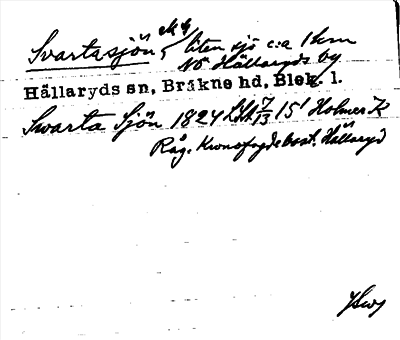 Svartasjön, ek 4
liten sjö c:a 1 km
NÖ Hällaryds by
Hällaryds sn, Bräkne hd, Blek. l.
Swarta Sjön 1824 7/13 15' Holmer K
Råg. Kronofogdebost. Hällaryd